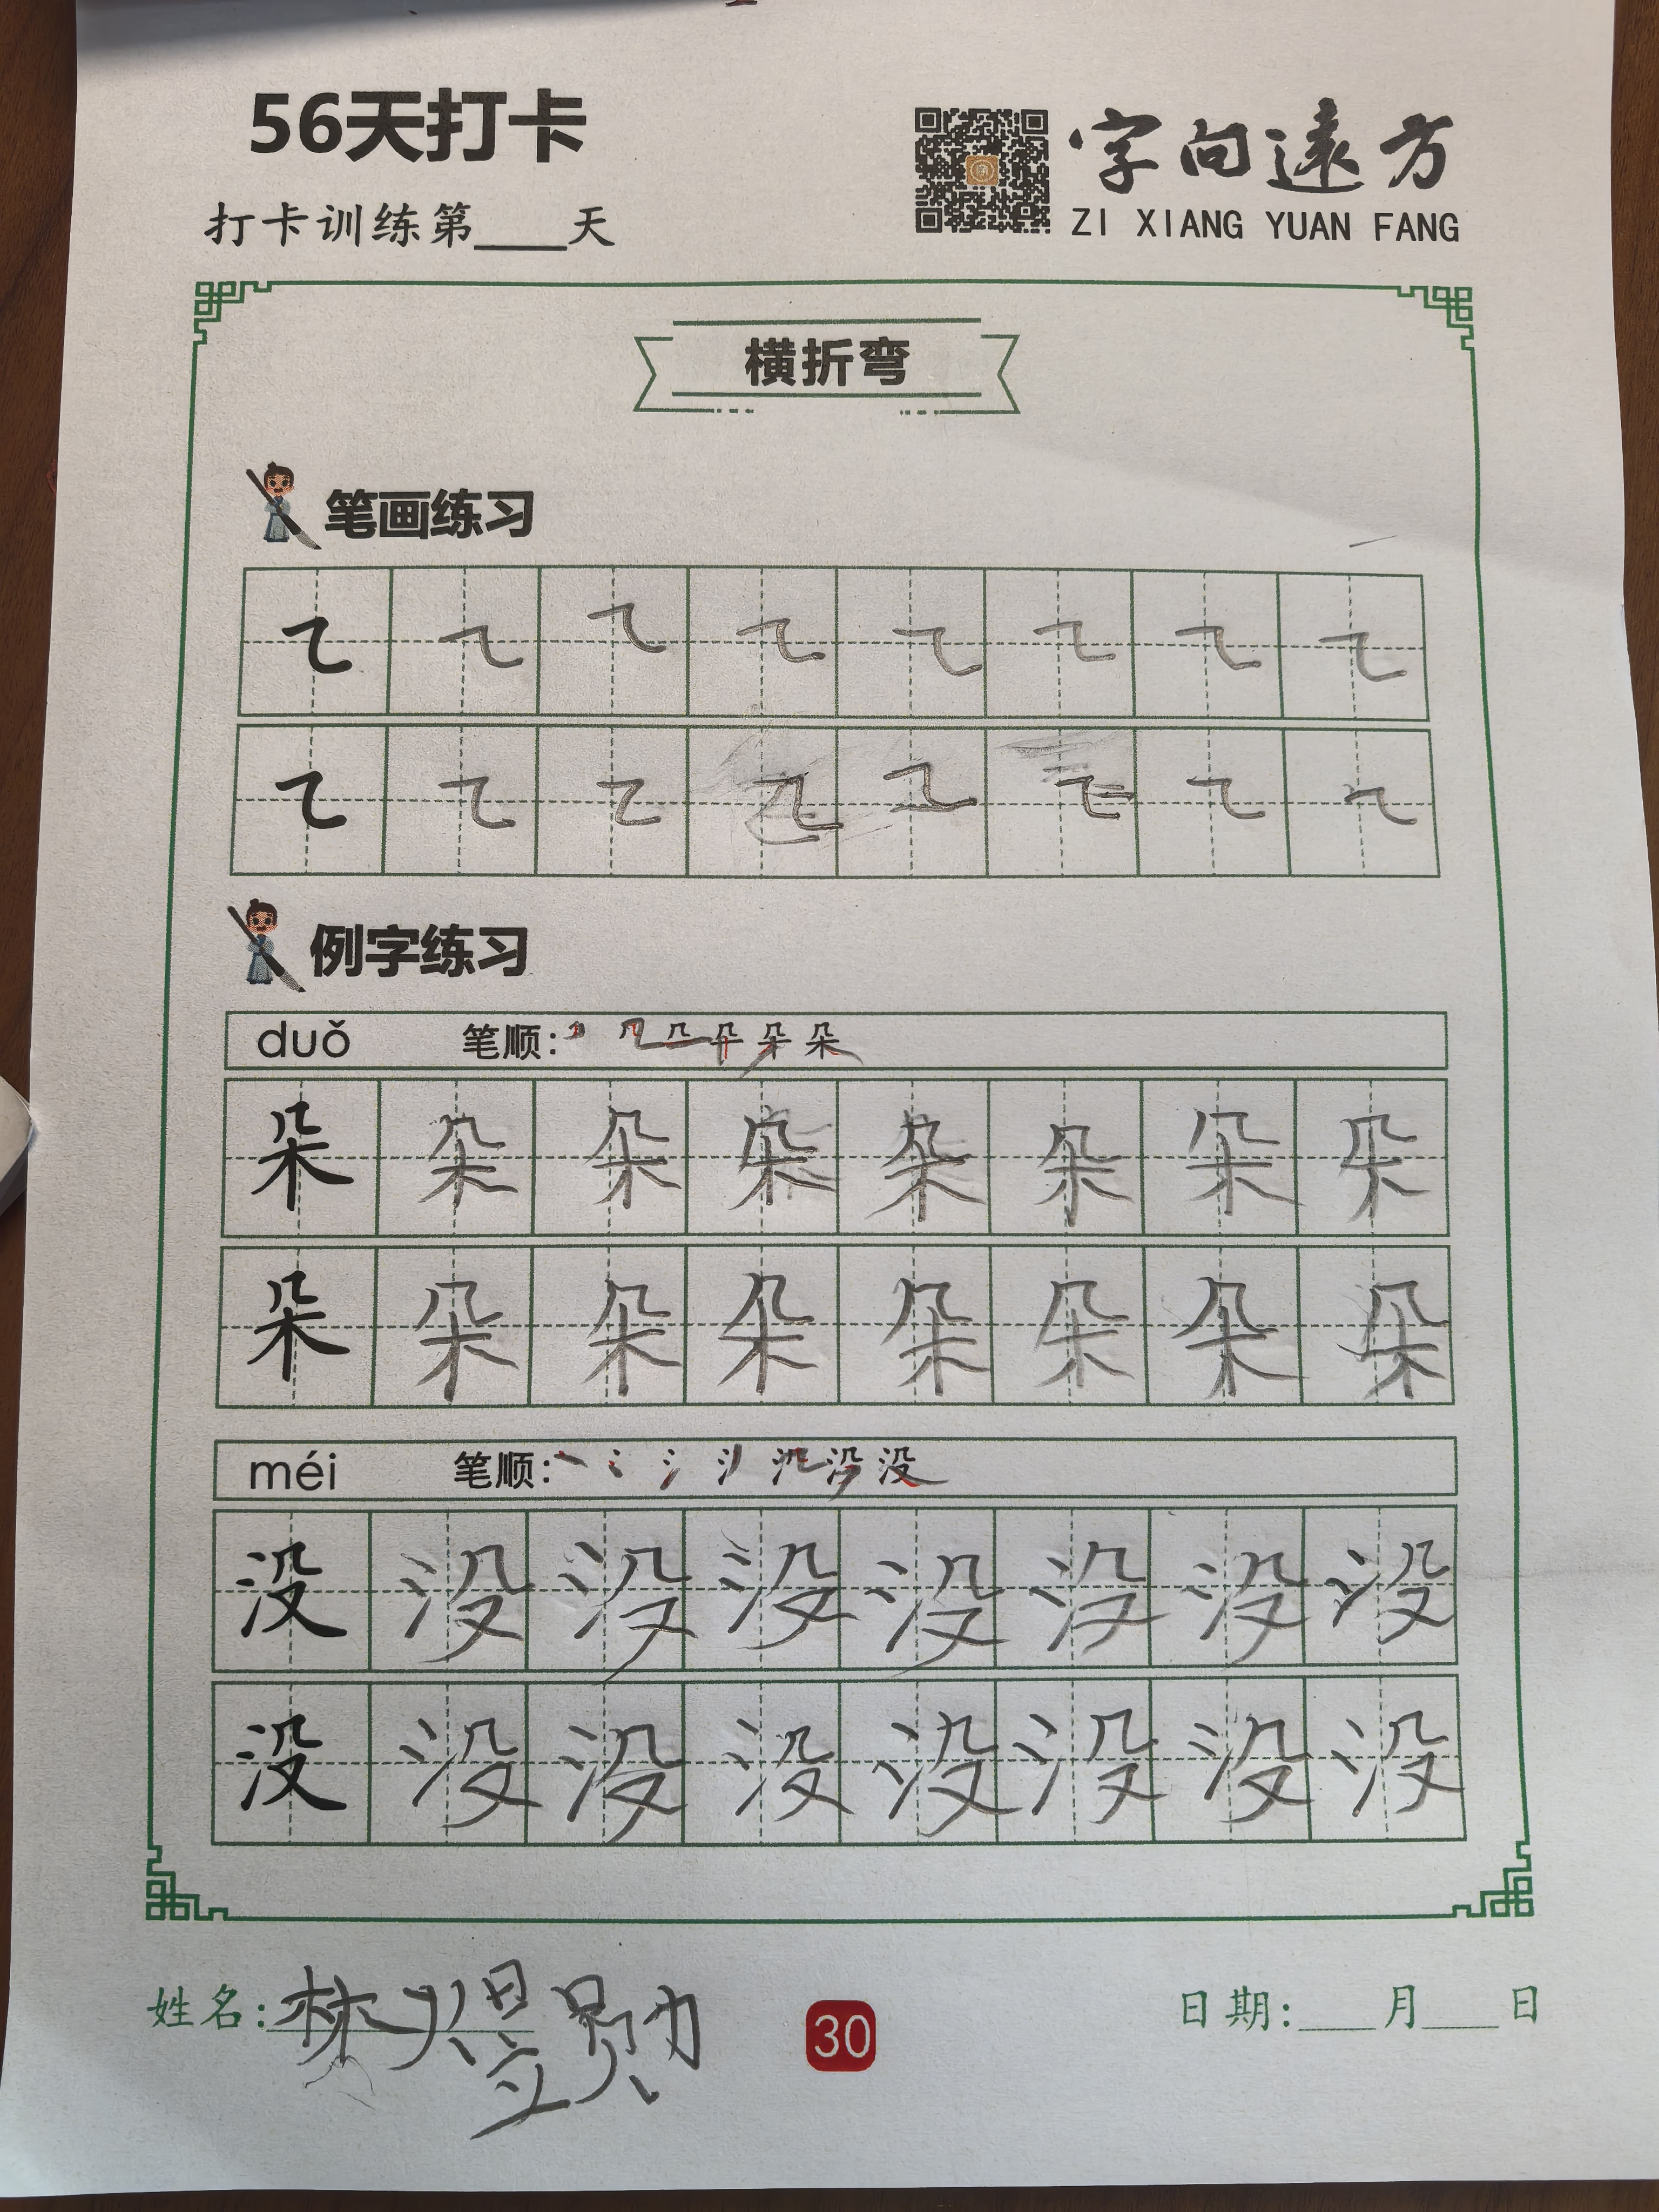 56天打卡
字向遠方
ZI XIANG YUAN FANG
打卡训练第____天
横折弯
笔画练习
例字练习
duǒ 笔顺:
朵 朵 朵 朵 朵 朵 朵 朵
朵 朵 朵 朵 朵 朵 朵 朵
méi 笔顺:
没 没 没 没 没 没 没 没
没 没 没 没 没 没 没 没
姓名:林煜勋
30
日期:____月____日